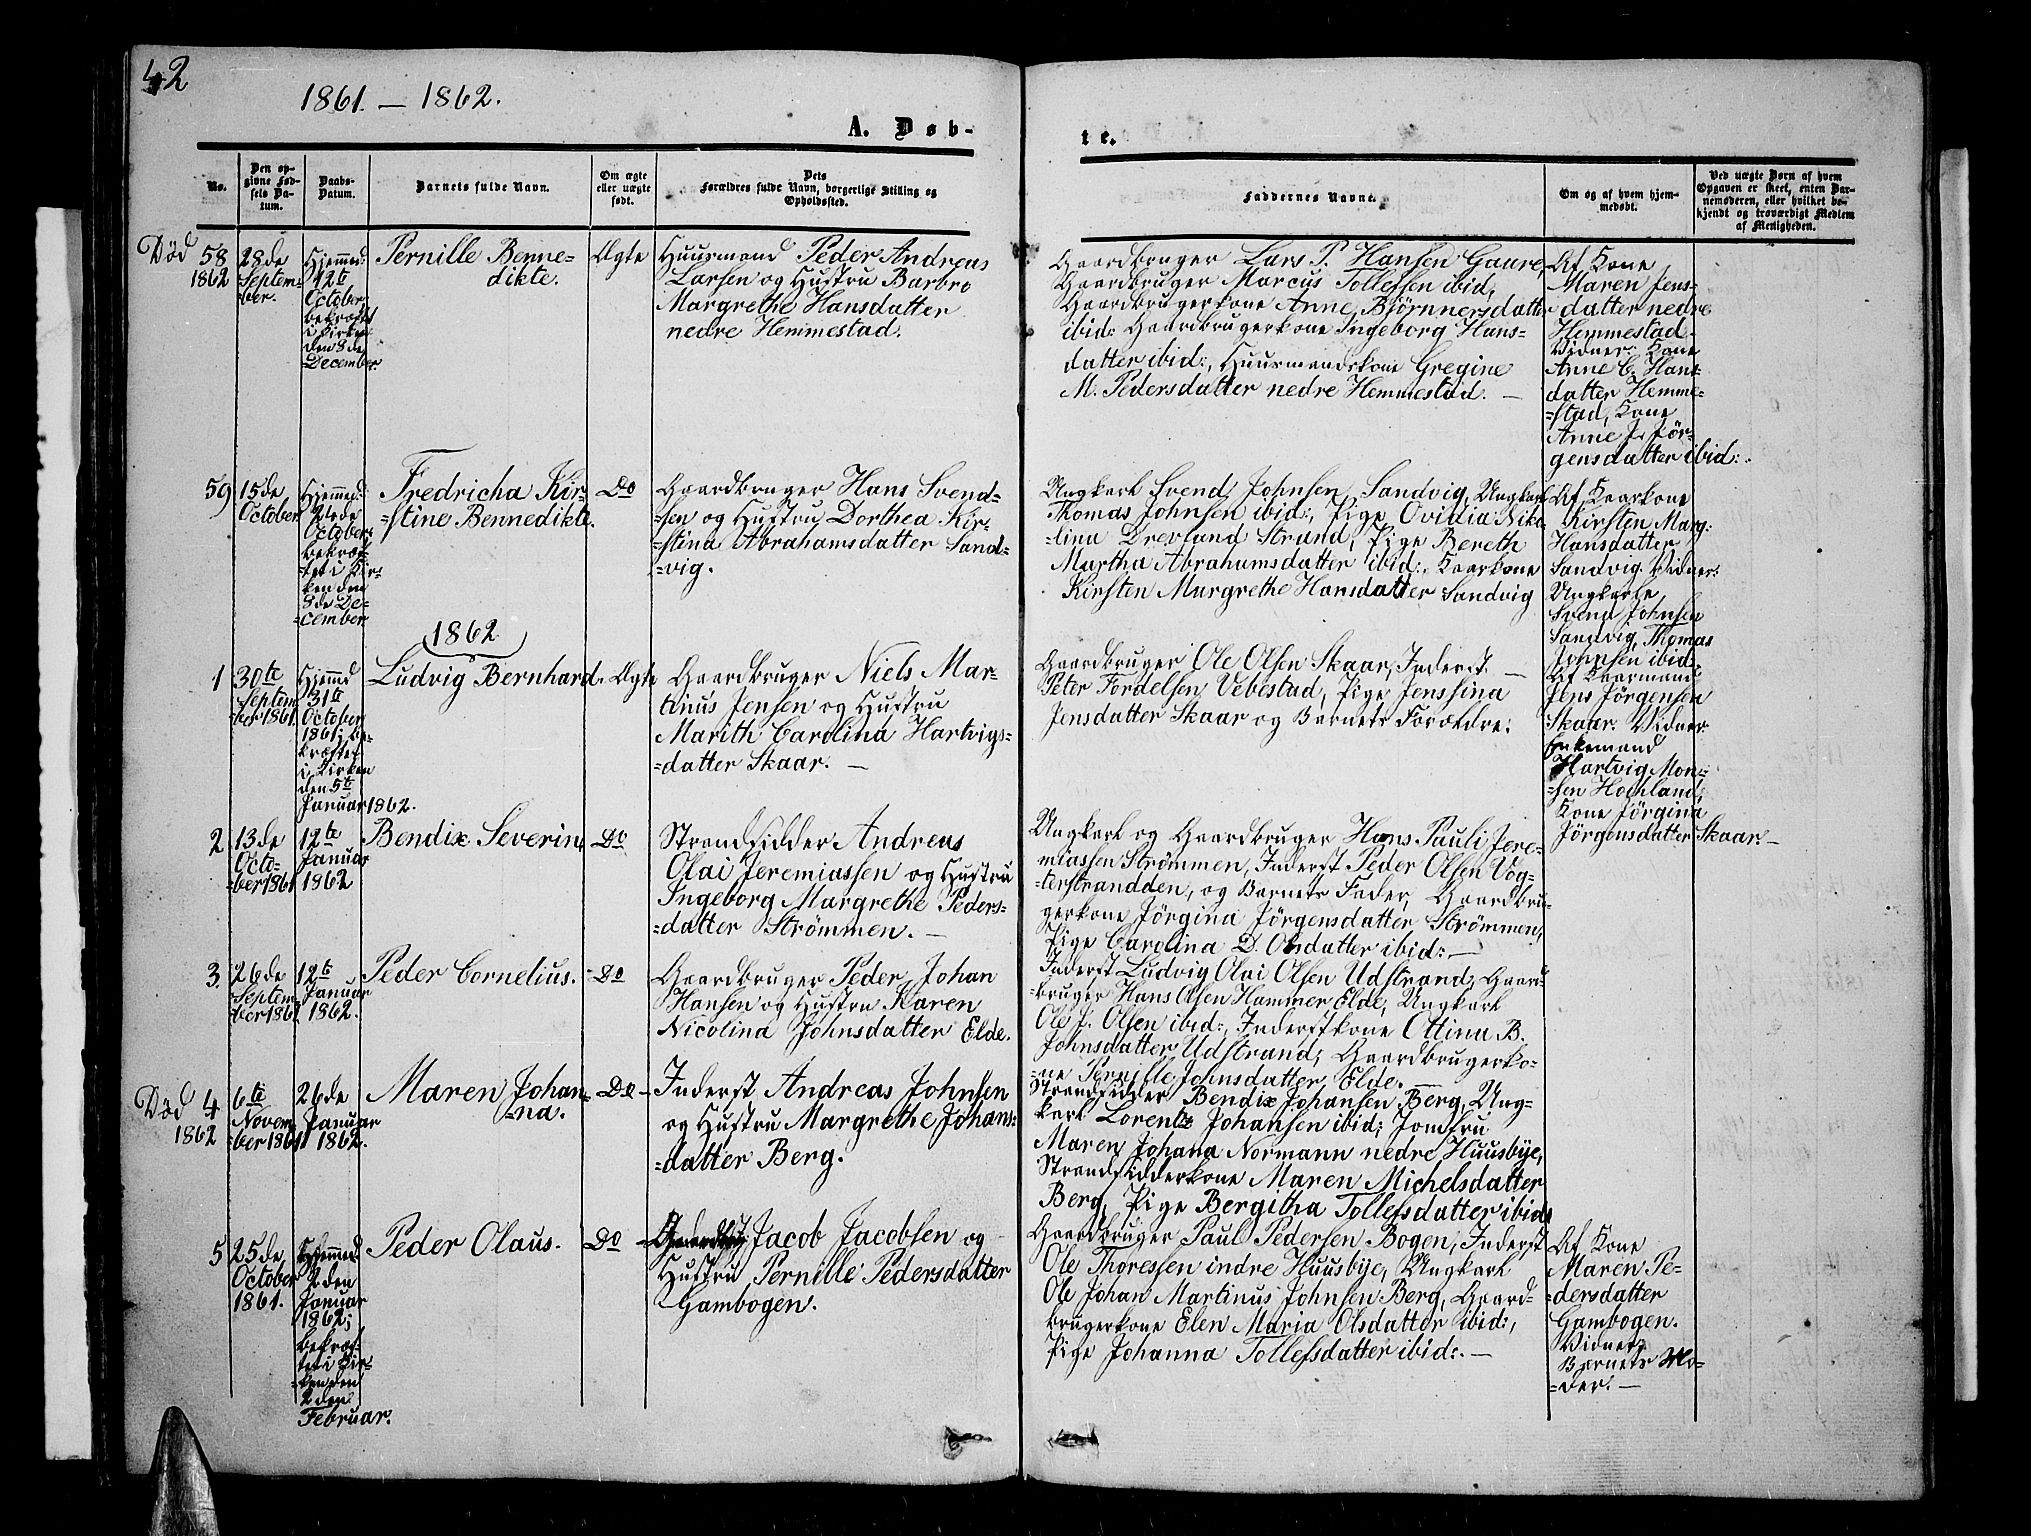 42
1861. — 1862.
A. Døb-
te.
No.
Den op-
givne Fød-
sels Da-
tum.
Daabs-
Datum.
Barnets fulde Navn.
Om ægte
eller uægte
født.
Dets
Forældres fulde Navn, borgerlige Stilling og
Opholdssted.
Faddernes Navne.
Om og af hvem hjem-
medøbt.
Ved uægte Børn af hvem
Opgaven er skeet, enten Bar-
nemoderen, eller hvilket be-
kjendt og troværdigt Medlem
af Menigheden.
Død 58
1862
28de
Septem-
ber.
Hjemmed:
12te
October,
bekræftet
i Kirken
den 8de
December.
Pernille Benne-
dikte.
Ægte
Huusmand Peder Andreas
Larsen og Hustru Barbro
Margrethe Hansdatter
nedre Hemmestad.
Gaardbruger Lars P. Hansen Gaare,
Gaardbruger Marcus Tollefsen ibid,
Gaardbrugerkone Anne Björnnersdatter
ibid: Gaardbrugerkone Ingeborg Hans-
datter ibid:, Huusmandskone Gregine
M. Pedersdatter nedre Hemmestad. —
Af Kone
Maren Jens-
datter nedre
Hemmestad.
Vidner: Kone
Anne C. Hans-
datter Hemme-
=stad, Kone
Anne J. Jör-
gensdatter ibid:
59
15de
October
Hjemmed:
24de
October
bekræf-
tet i Kir-
ken den
8de De-
=cember
Fredricha Kir-
=stine Bennedikte.
Do
Gaardbruger Hans Svend-
=sen og Hustru Dorthea Kir-
=stina Abrahamsdatter Sand-
=vig.
Ungkarl Svend Johnsen Sandvig, Ungkarl
Thomas Johnsen ibid:, Pige Ovidia Niko
=lina Drevland Strand, Pige Bereth
Martha Abrahamsdatter ibid:, Kaarkone
Kirsten Margrethe Hansdatter Sandvig
Af Kaarkone
Kirsten Marg:
Hansdatter
Sandvig. Vidner:
Ungkarle
Svend Johnsen
Sandvig, Thomas
Johnsen ibid:
1862
1
30te
Septem
ber 1861.
Hjemmd
31te
October
1861; be-
kræftet
i Kirken
den 5te
Januar 1862.
Ludvig Bernhard.
Ægte
Gaardbruger Niels Mar-
tinus Jensen og Hustru
Marith Carolina Hartvigs-
=datter Skaar. —
Gaardbruger Ole Olsen Skaar, Inderst —
Peter Fordelsen Vebestad, Pige Jenssina
Jensdatter Skaar og Barnets Forældre.
Af Kaarmand
Jens Jörgensen
Skaar. Vidner:
Enkemand
Hartvig Mon-
=sen Hochland,
Kone Jörgina
Jörgensdatter Skaar. —
2
13de
Octo-
=ber 1861
12te
Januar
1862
Bendix Severin.
Do
Strandsidder Andreas
Olai Jeremiassen og Hustru
Ingeborg Margrethe Peders-
=datter Strömmen. —
Ungkarl og Gaardbruger Hans Pauli Jere-
miassen Strömmen, Inderst Peder Olsen Vog-
=terstrandden, og Barnets Fader, Gaardbru-
gerkone Jörgina Jörgensdatter Strömmen,
Pige Carolina D. Olsdatter ibid: —
3.
26de
Septem
ber 1861
12te
Januar
1862.
Peder Cornelius.
Do
Gaardbruger Peder Johan
Hansen og Hustru Karen
Nicolina Johnsdatter Elde.
Inderst Ludvig Olai Olsen Udstrand, Gaard-
bruger Hans Olsen Hammer Elde, Ungkarl
Ole J. Olsen ibid:, Inderstkone Ottina B.
Johnsdatter Udstrand, Gaardbrugerko-
=ne Pernille Johnsdatter, Elde. —
Død 4
1862
6te
Novem
ber 1861
26de
Januar
1862.
Maren Johan-
=na.
Do
Inderst Andreas Johnsen
og Hustru Margrethe Johans-
=datter Berg.
Strandsidder Bendix Johansen Berg, Ung-
karl Lorentz Johansen ibid; Jomfru
Maren Johana Normann nedre Huusbÿe,
Strandsidderkone Maren Michelsdatter
Berg, Pige Bergitha Tollefsdatter ibid:
5
25de
October
1861.
Hjemmed
2den
Januar
1862;
bekræf-
tet i Kir-
=ken den
2den
Februar.
Peder Olaus.
Do
Jacob Jacobsen og
Hustru Pernille Pedersdatter
Gambogen.
Gaardbruger Paul Pedersen Bogen, Inderst
Ole Thoressen indre Huusbÿe, Ungkarl
Ole Johan Martinus Johnsen Berg, Gaard-
brugerkone Elen Maria Olsdatter ibid:,
Pige Johanna Tollefsdatter ibid:. —
Af Kone
Maren Pe-
=dersdatter
Gambogen.
Vidner:
Barnets Mo-
=der. —